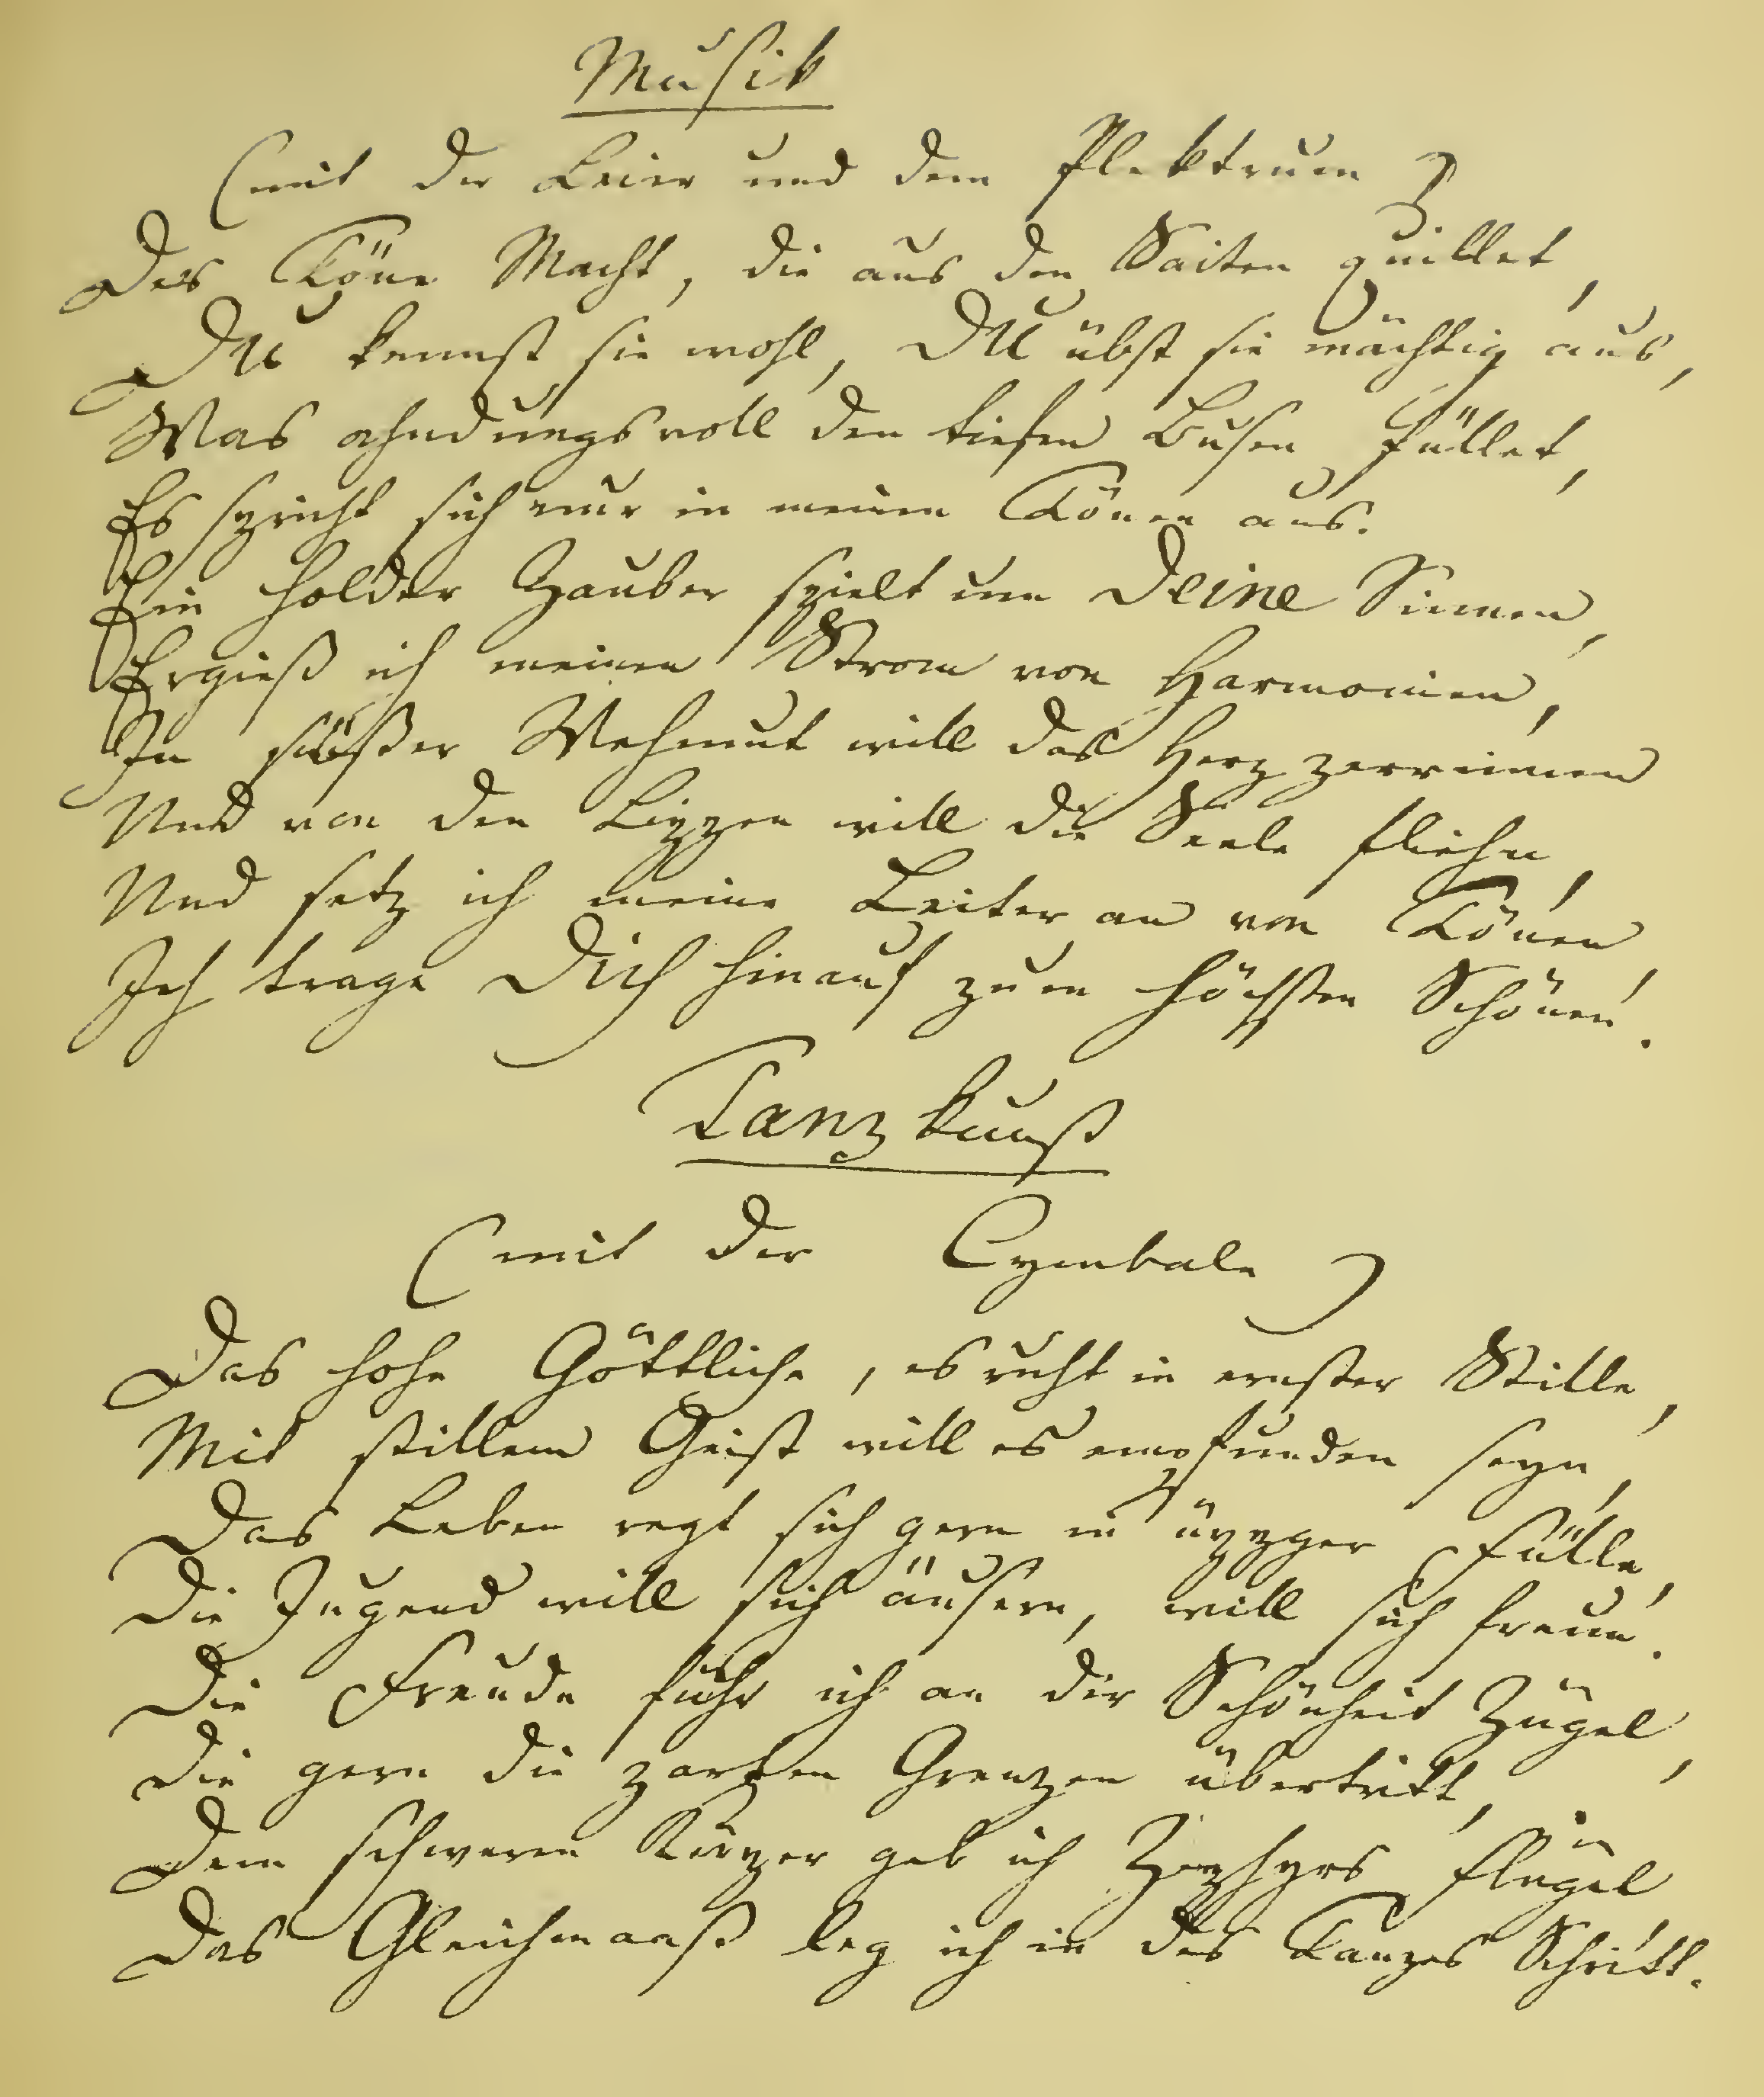 Musik
(mit der Leier und dem Plektrum)
Der Töne Macht, die aus den Saiten quillet,
Du kennst sie wohl, Du übst sie mächtig aus,
Was ahndungsvoll den tiefen Busen füllet,
Es spricht sich nur in meinen Tönen aus.
Ein holder Zauber spielt um Deine Sinnen,
Ergieß ich meinen Strom von Harmonien,
In süßer Wehmut will das Herz zerrinnen
Und von den Lippen will die Seele fliehn,
Und setz ich meine Leiter an von Tönen,
Ich trage Dich hinauf zum höchsten Schönen!
Tanzkunst
(mit der Cymbale)
Das hohe Göttliche, es ruht in ernster Stille,
Mit stillem Geist will es empfunden seyn,
Das Leben regt sich gern in üppger Fülle,
Die Jugend will sich äusern, will sich freun!
Die Freude führ ich an der Schönheit Zügel,
Die gern die zarten Grenzen übertritt,
Dem schweren Körper geb ich Zephyrs Flügel
Das Gleichmaaß leg ich in des Tanzes Schritt.